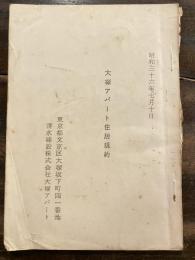 昭和三十六年七月十日
大塚アパート住居規約
東京都文京区大塚坂下町四一番地
清水建設株式会社大塚アパート